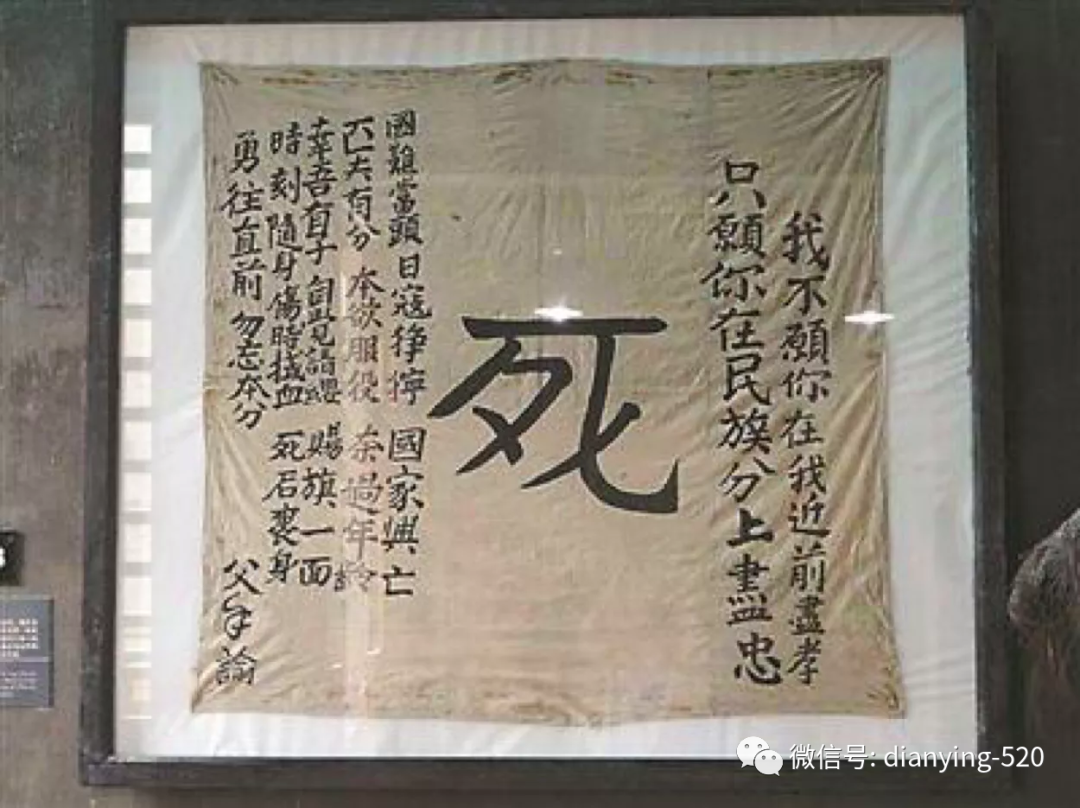 我不願你在我近前盡孝
只願你在民族分上盡忠
死
國難當頭 日寇猙獰 國家興亡
匹夫有分 本欲服役 奈過年齡
幸吾有子 自覺請纓 賜旗一面
時刻隨身 傷時拭血 死后裹身
勇往直前 勿忘本分
父手諭
微信号: dianying-520